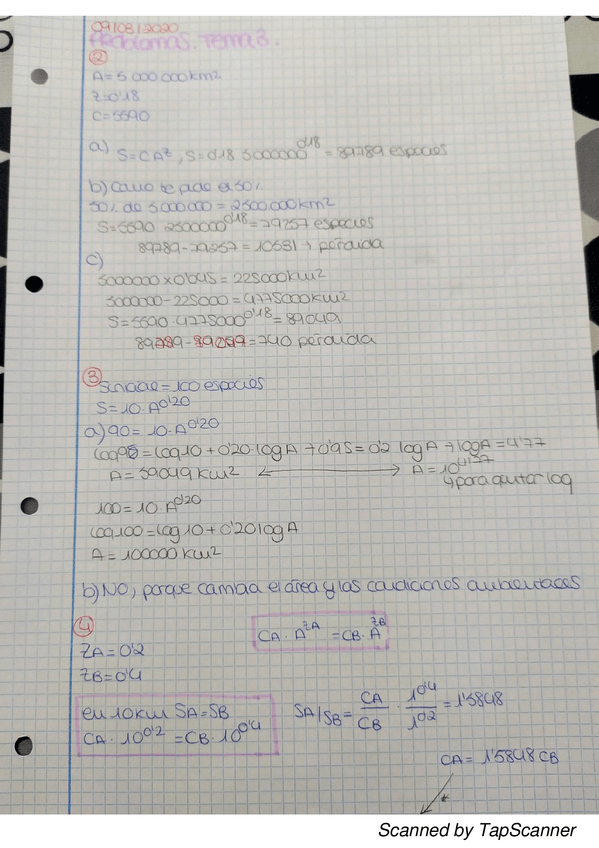 09/08/2020
Problemas. Tema 3.
②
A = 5 000 000 km²
Z = 0'18
C = 5590
a) S = CA^Z, S = 0'18 5000000^0'18 = 89789 especies
b) Como te pide el 50%
50% de 5000000 = 2500.000 km²
S = 5590 · 2500000^0'18 = 79257 especies
89789 - 79257 = 10531 → pérdida
c)
5000000 x 0'045 = 225000 km²
5000000 - 225000 = 4775000 km²
S = 5590 · 4775000^0'18 = 89049
89789 - 89049 = 740 pérdida
③
= 100 especies
S = 10 · A^0'20
a) 90 = 10 · A^0'20
log90 = log10 + 0'20 · logA → 0'95 = 0'2 logA → logA = 4'77
A = 59049 km² ←→ A = 10^4'77
↳ para quitar log
100 = 10 · A^0'20
log100 = log10 + 0'20 logA
A = 100000 km²
b) NO, porque cambia el área y las condiciones ambientales
④
ZA = 0'2
ZB = 0'4
CA · A^ZA = CB · A^ZB
en 10km SA = SB
CA · 10^0'2 = CB · 10^0'4
SA/SB = CA/CB · 1^0'4/1^0'2 = 1'5848
CA = 1'5848 CB
Scanned by TapScanner